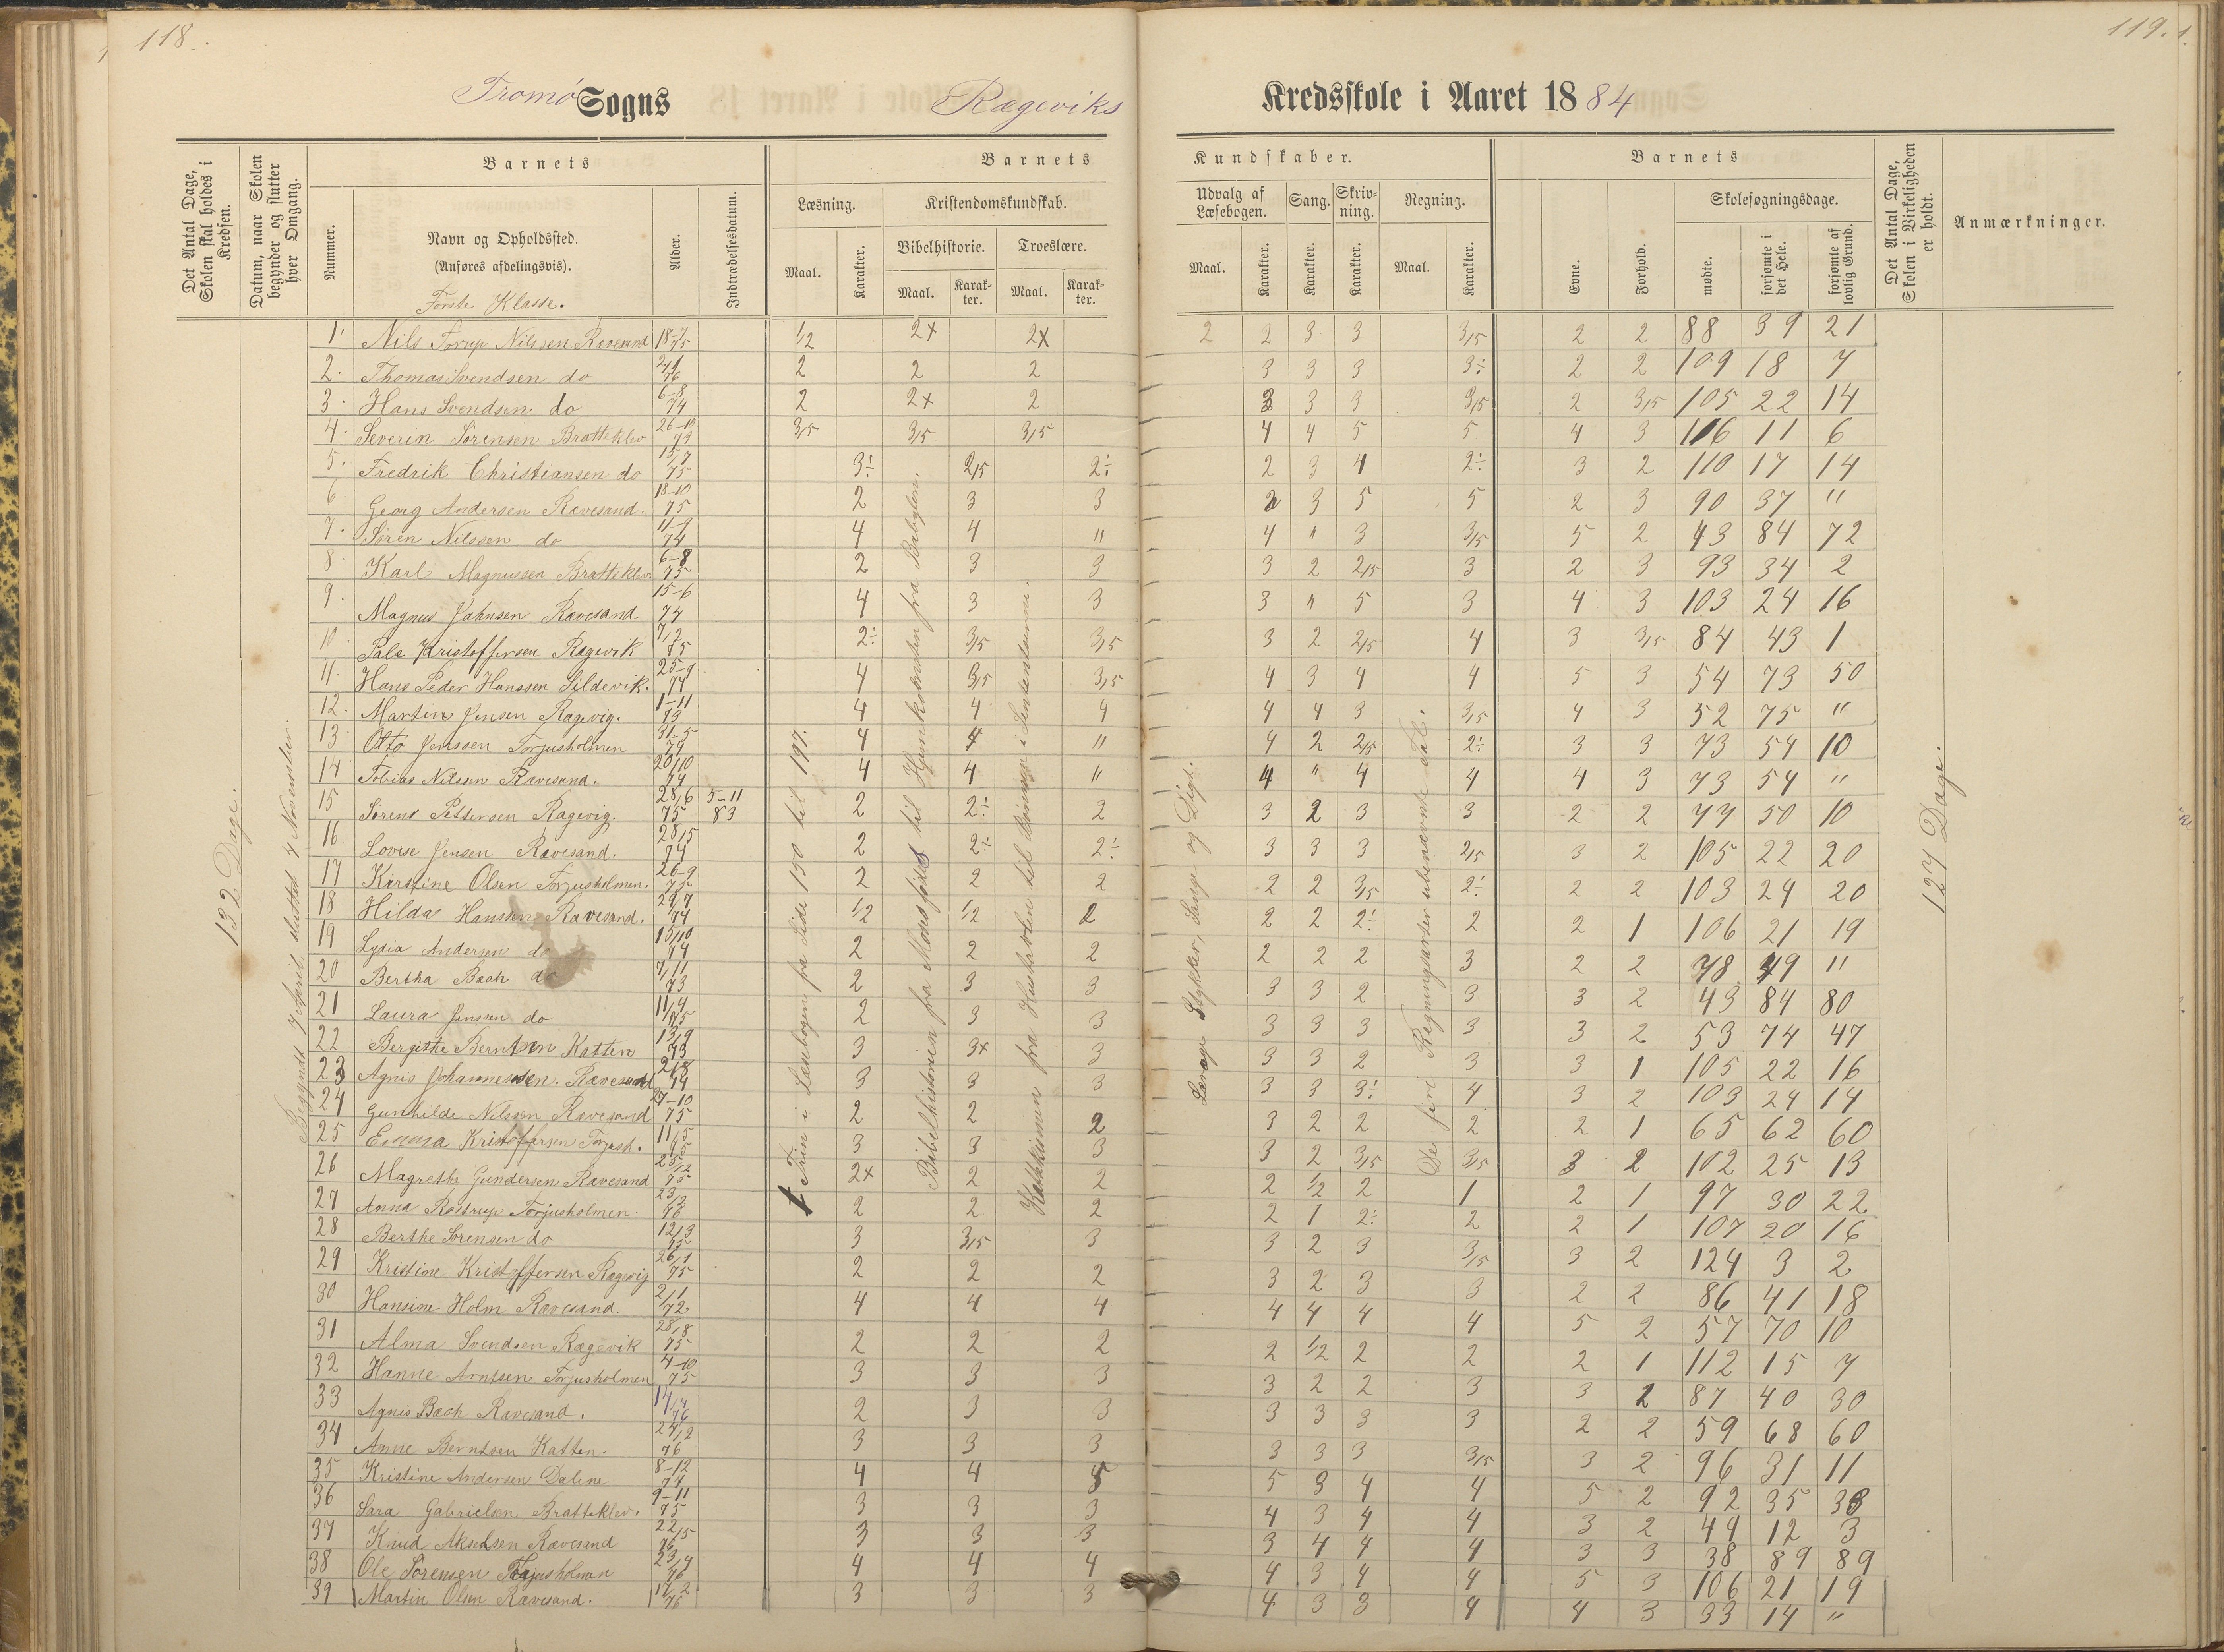 118.
119.
Tromø Sogns Rægeviks Kredsskole i Aaret 1884
Det Antal Dage, Skolen skal holdes i Kredsen.
Datum, naar Skolen begynder og slutter hver Omgang.
Barnets
Nummer.
Navn og Opholdssted.
(Anføres afdelingsvis).
Første Klasse.
Alder.
Indtrædelsesdatum.
Barnets Kundskaber.
Læsning.
Maal.
Karakter.
Kristendomskundskab.
Bibelhistorie.
Maal.
Karakter.
Troeslære.
Maal.
Karakter.
Udvalg af Læsebogen.
Maal.
Karakter.
Sang.
Karakter.
Skrivning.
Karakter.
Regning.
Maal.
Karakter.
Barnets
Evne.
Forhold.
Skolesøgningsdage.
mødte.
forsømte i det Hele.
forsømte af lovlig Grund.
Det Antal Dage, Skolen i Virkeligheden er holdt.
Anmærkninger.
132 Dage.
Begyndt 7 April, sluttet 7 November.
Trin i Læsebogen fra Side 150 til 197.
Bibelhistorien fra Mose fødsel til Hjemkomsten fra Babylon.
Katekismen fra Hustavlen til
Længe Stykker, Sange og Digt.
De fire Regningsarter ubenævnte Tal.
127 Dage.
1. Nils Torup Nilssen Ravesand 1/2 2+ 2x 2 2 3 3 3/15 2 2 88 39 21
2. Thomas Svendsen do 2 2 2 3 3 3 3÷ 2 2 109 18 7
3. Hans Svendsen do 6-8 74 2 2+ 2 3 3 3 3/15 2 3/15 105 22 14
4. Severin Sørensen Bratteklev 26-10 73 3/15 3/15 3/15 4 4 5 5 4 3 116 11 6
5. Fredrik Christiansen do 15/7 75 3÷ 2/15 2÷ 2 3 4 2÷ 3 2 110 17 14
6. Georg Andersen Ravesand. 18-10 75 2 3 3 2 3 5 5 2 3 90 37 "
7. Søren Nilssen do 11-9 74 4 4 " 4 " 3 3/15 5 2 43 84 72
8. Karl Magnussen Bratteklev. 6-8 75 2 3 3 3 2 2/15 3 2 3 93 34 2
9. Magnus Jahnsen Ravesand 15-6 74 4 3 3 3 " 5 3 4 3 103 24 16
10. Pale Kristoffersen Rægevik 7/2 75 2÷ 3/15 3/15 3 2 2/15 4 3 3/15 84 43 1
11. Hans Peder Hanssen Sildevik. 25-9 74 4 3/15 3/15 4 3 4 4 5 3 54 73 50
12. Martin Jensen Ragevig. 1-11 73 4 4 4 4 4 3 3/15 4 3 52 75 "
13 Otto Jenssen Torjusholmen 31-5 74 4 4 " 4 2 2/15 2÷ 3 3 73 54 10
14 Tobias Nilsen Ravesand. 20/10 74 4 4 " 4 " 4 4 4 3 73 54 "
15 Sørens Pettersen Ragevig. 28/6 75 5-11 83 2 2÷ 2 3 2 3 3 2 2 77 50 10
16 Lovise Jensen Ravesand. 28/5 74 2 2÷ 2÷ 3 3 3 2/15 3 2 105 22 20
17 Kirstine Olsen Torjusholmen. 26-9 75 2 2 2 2 2 3/15 2÷ 2 2 103 24 20
18 Hilda Hanssen Ravesand. 29/7 74 1/2 1/2 2 2 2 2÷ 2 2 1 106 21 19
19 Lydia Andersen do 15/10 74 2 2 2 2 2 2 3 2 2 78 49 "
20 Bertha Bach do 7/11 73 2 3 3 3 3 2 3 3 2 43 84 80
21 Laura Jenssen do 11/4 75 2 3 3 3 3 3 3 3 2 53 74 47
22 Bergithe Berntsen Katten 13/9 73 3 3+ 3 3 3 2 3 3 1 105 22 16
23 Agnis Johannessen. Ravesand 74 3 3 3 3 3 3÷ 4 3 2 103 24 14
24 Gunhilde Nilssen Ravesand 27-10 75 2 2 2 3 2 2 2 2 1 65 62 60
25 Emma Kristoffersen Torjush. 11/5 75 3 3 3 3 2 3/15 3/15 3 2 102 25 13
26 Magrethe Gundersen Ravesand 25/12 75 2+ 2 2 2 1/2 2 1 2 1 97 30 22
27 Anna Rostrup Torjusholmen. 2 2 2 2 1 2÷ 2 2 1 107 20 16
28 Berthe Sørensen do 12/3 75 3 3/15 3 3 2 3 3/15 3 2 124 3 2
29 Kristine Kristoffersen Ragevig 26/1 75 2 2 2 3 2 3 3 2 2 86 41 18
30 Hansine Holm Ravesand. 2/1 72 4 4 4 4 4 4 4 5 2 57 70 10
31 Alma Svendsen Rægevik 28/8 75 2 2 2 2 1/2 2 2 2 1 112 15 7
32 Hanne Arntsen Torjusholmen 4-10 75 3 3 3 3 2 2 3 3 2 87 40 30
33 Agnis Bach Ravesand. 76 2 3 3 3 3 3 3 2 2 59 68 60
34 Anne Berntsen Katten. 24/12 76 3 3 3 3 3 3 3/15 3 2 96 31 11
35 Kristine Andersen Dalene 8-12 74 4 4 5 5 3 4 4 5 2 92 35 33
36 Sara Gabrielsen Bratteklev. 9-11 75 3 3 3 4 3 4 4 3 2 44 12 3
37 Knud Akselsen Ravesand 22/5 76 3 3 3 3 4 4 4 3 3 38 89 89
38 Ole Sørensen Torjusholmen 23/4 76 4 4 4 4 3 4 4 5 3 106 21 19
39 Martin Olsen Ravesand. 3 3 3 4 3 3 4 4 3 33 14 "